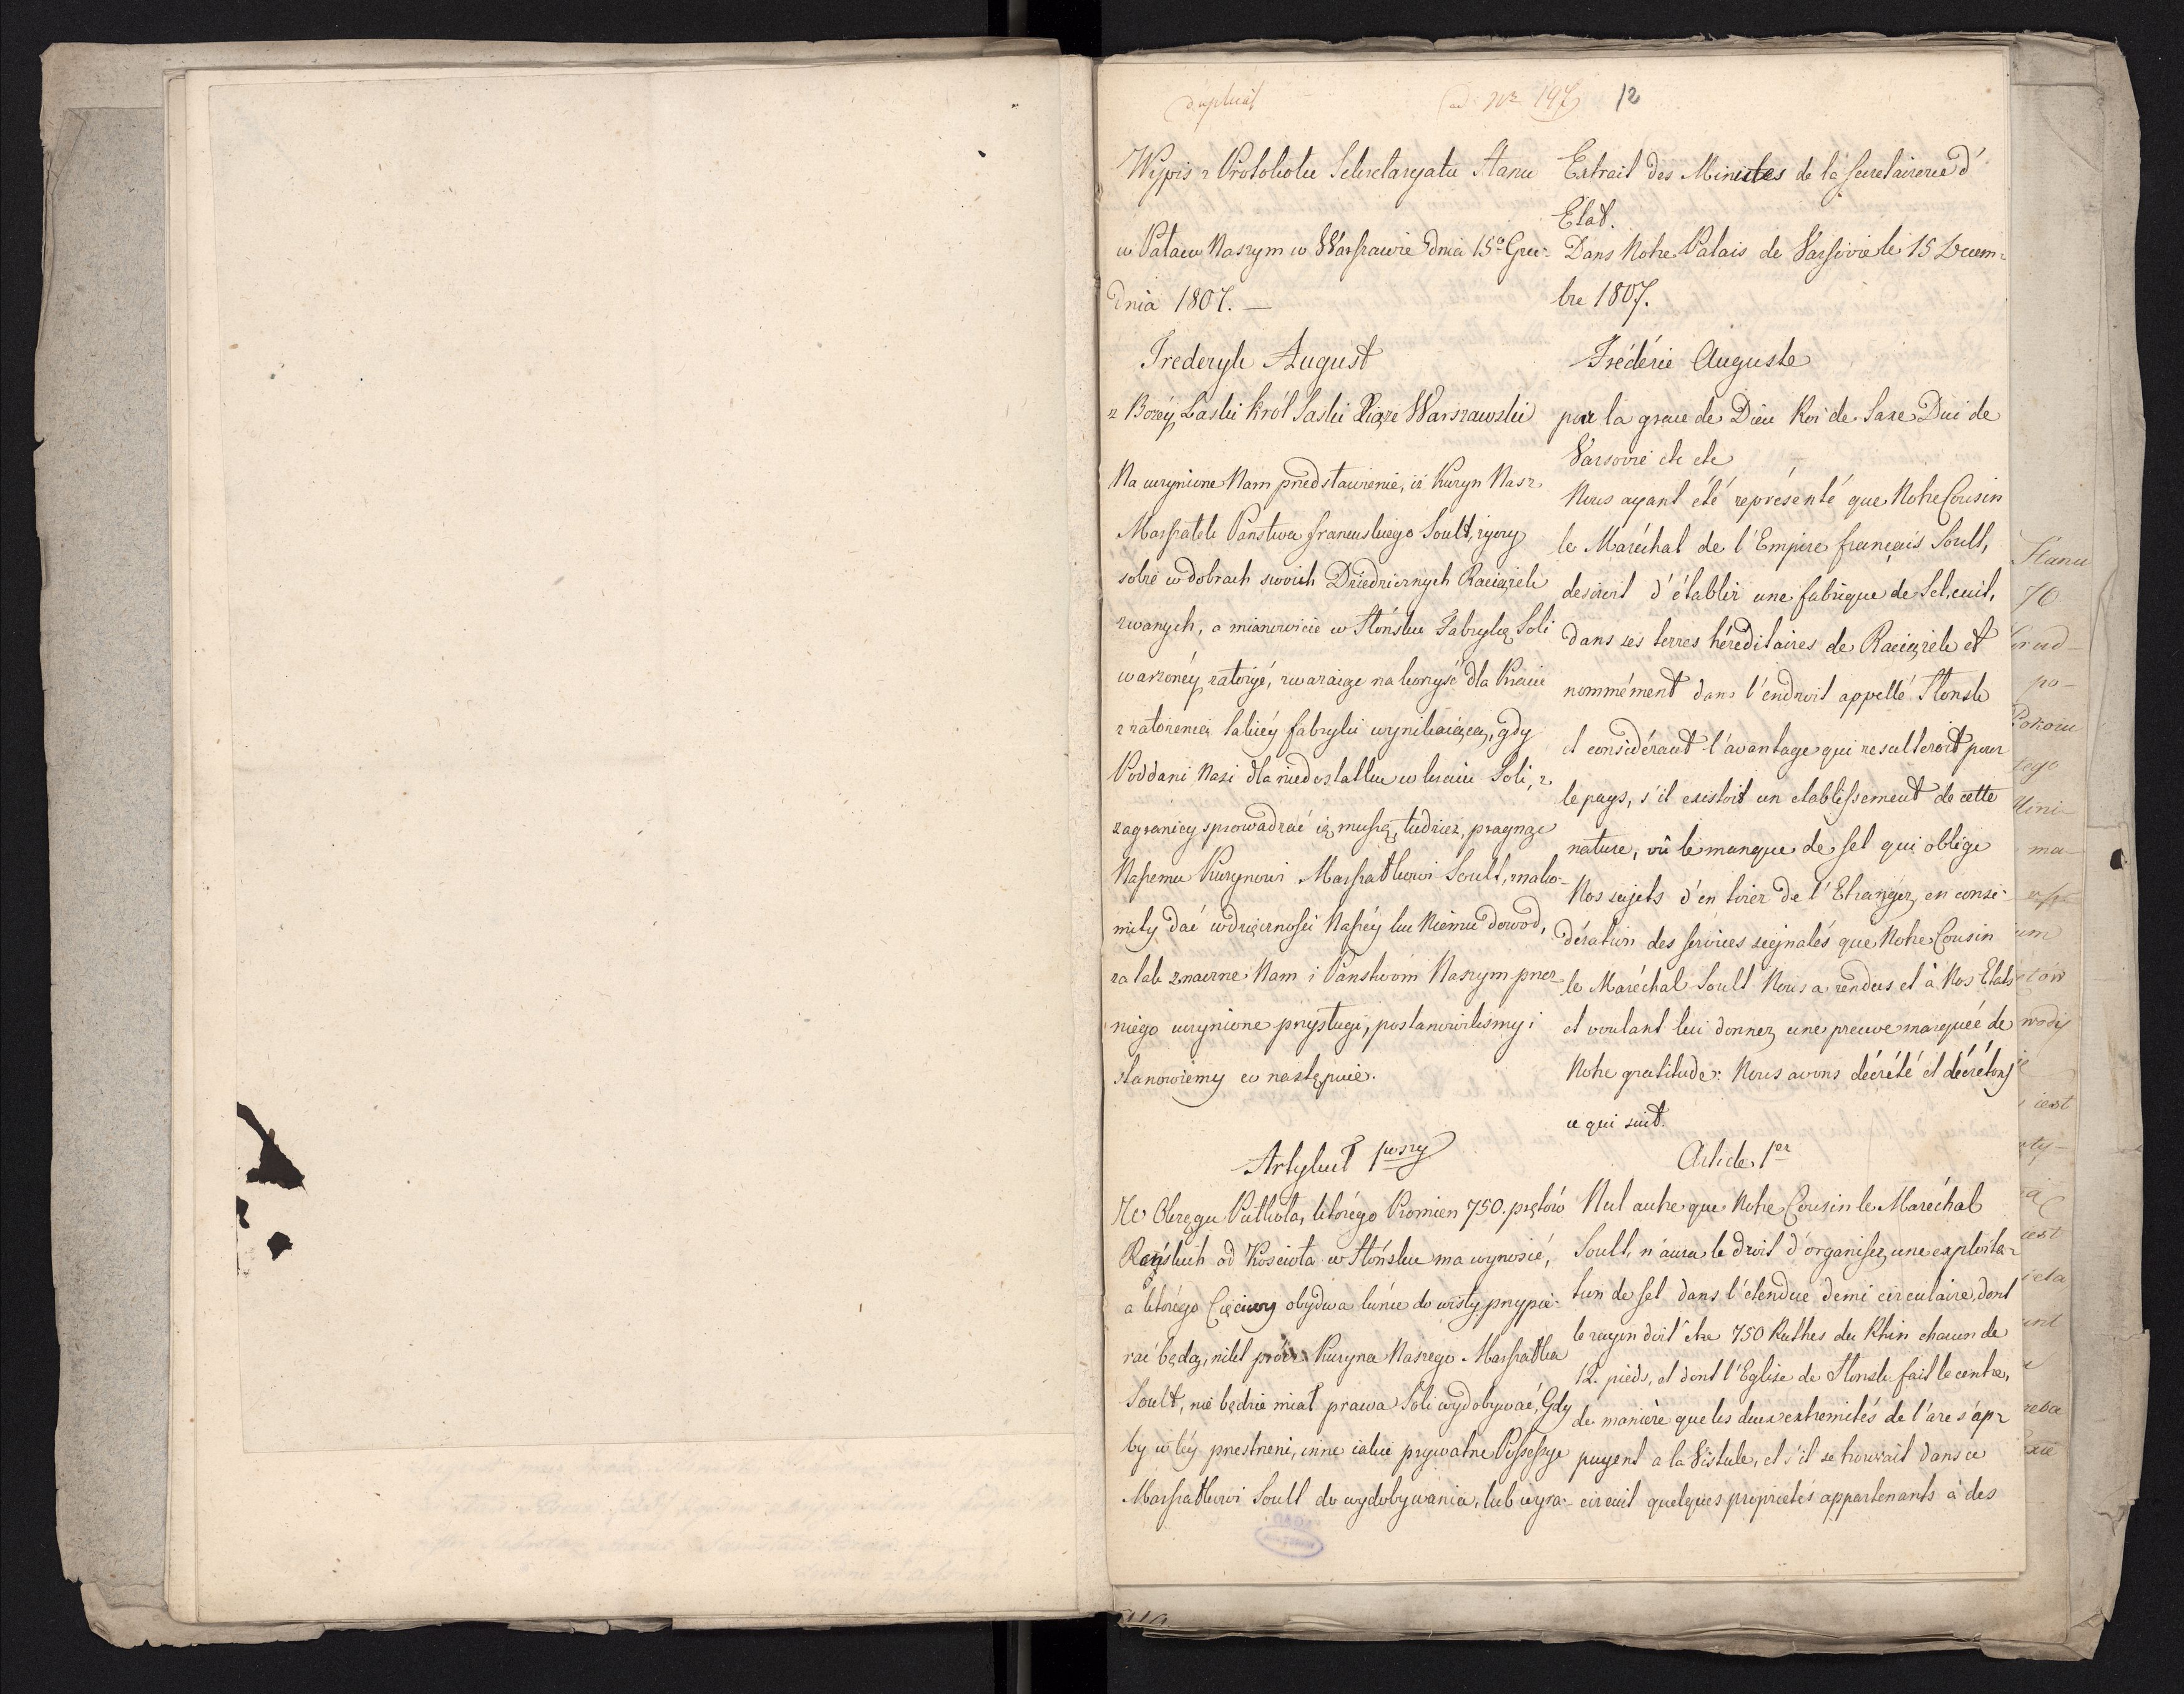 duplicat
ad Nr 197
12
Wypis z Protokołu Sekretaryatu Stanu
w Pałacu Naszym w Warszawie dnia 15o Gru-
dnia 1807. —
Frederyk August
z Bożey Łaski Król Saski Xiąże Warszawski
Na uczynione Nam przedstawienie, iż Kuzyn Nasz
Marszałek Państwa francuskiego Soult, życzy
sobie w dobrach swoich Dziedzicznych Raciążek
zwanych, a mianowicie w Słońsku Fabrykę Soli
warzonéy założyć, zwaraiąc na korzyść dla Kraiu
z założenia takiéy fabryki wynikaiącą, gdy
Poddani Nasi dla niedostatku w kraiu Soli, z
zagranicy sprowadzać ią muszą, tudzież, pragnąc
Naszemu Kuzynowi Marszałkowi Soult, znako-
mity dać wdzięcznosci Naszéy ku Niemu dowod,
za tak znaczne Nam i Państwom Naszym przez
niego uczynione przysługi, postanowilismy i
stanowiemy co następuie.
Artykuł 1wszy
We Okręgu Pułkola, którego Promien 750. prętów
Reńskich od Kościoła w Słońsku ma wynosić,
a którego Cięciwy obydwa końce do wisły przypie-
rać będą, nikt prócz Kuzyna Naszego Marszałka
Soult, nie będzie miał prawa Soli wydobywać, Gdy
by w téy przestrzeni, inne iakie prywatne Possessye
Marszałkowi Soult do wydobywania, lub wyra-
Extrait des Minutes de la Secretairerie d'
Etat.
Dans Notre Palais de Varsovie le 15 Decem-
bre 1807.
Frédéric Auguste
par la grace de Dieu Roi de Saxe Duc de
Varsovie etc etc
Nous ayant été représenté que Notre Cousin
le Maréchal de l'Empire français Soult,
desiroit d'établir une fabrique de Sel, cuit,
dans ses terres héreditaires de Raciążek et
nommément dans l'endroit appellé Slonsk
et considérant l'avantage qui resulteroit pour
le pays, s'il existoit un etablissement de cette
nature, vû le manque de sel qui oblige
Nos sujets d'en tirer de l'Etranger, en consi-
dération des services signalés que Notre Cousin
le Maréchal Soult Nous a rendus et à Nos Etats
et voulant lui donner une preuve marquée de
Notre gratitude: Nous avons décrété et décrétons
ce qui suit.
Article 1er
Nul autre que Notre Cousin le Maréchal
Soult, n'aura le droit d'organiser une exploita-
tion de sel dans l'étendue demi circulaire, dont
le rayon doit être 750 Ruthes du Rhin chacun de
12. pieds, et dont l'Eglise de Slonsk fait le centre,
de manière que les deux extremités de l'arc s'ap-
puyent a la Vistule, et s'il se trouvait dans ce
circuit quelques proprietés appartenants à des
Stanu
70
Grud-
po-
Pokoiu
tego
Mini-
ma-
um
iest
iest